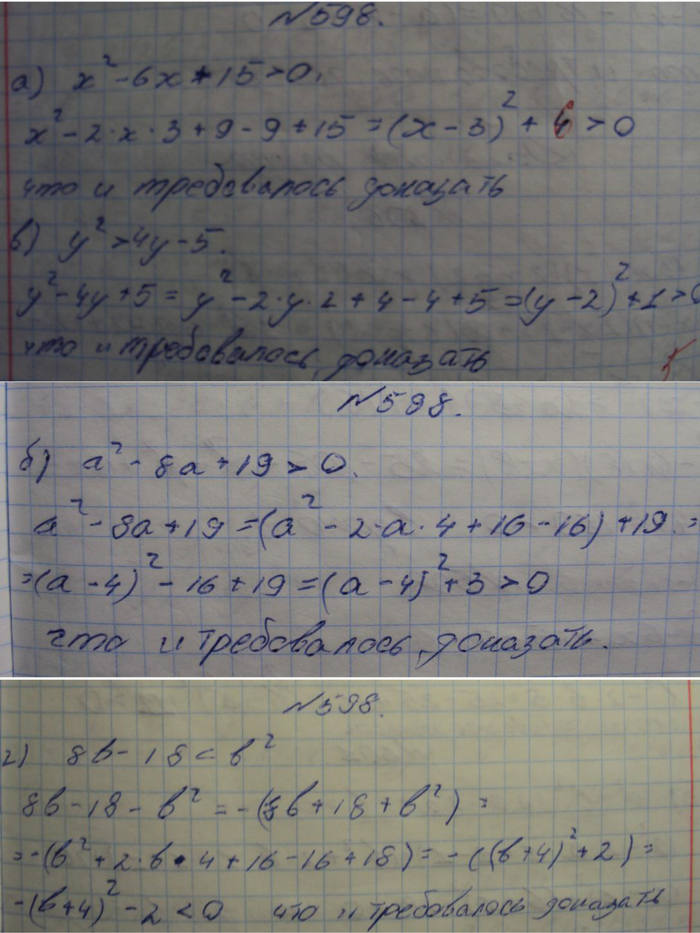 №598.
а) x² - 6x + 15 > 0.
x² - 2·x·3 + 9 - 9 + 15 = (x - 3)² + 6 > 0
что и требовалось доказать
в) y² > 4y - 5.
y² - 4y + 5 = y² - 2·y·2 + 4 - 4 + 5 = (y - 2)² + 1 > 0
что и требовалось доказать
№598.
б) a² - 8a + 19 > 0.
a² - 8a + 19 = (a² - 2·a·4 + 16 - 16) + 19 =
= (a - 4)² - 16 + 19 = (a - 4)² + 3 > 0
что и требовалось доказать.
№598.
г) 8b - 18 < b²
8b - 18 - b² = -(8b + 18 + b²) =
= -(b² + 2·b·4 + 16 - 16 + 18) = -((b+4)² + 2) =
-(b+4)² - 2 < 0 что и требовалось доказать